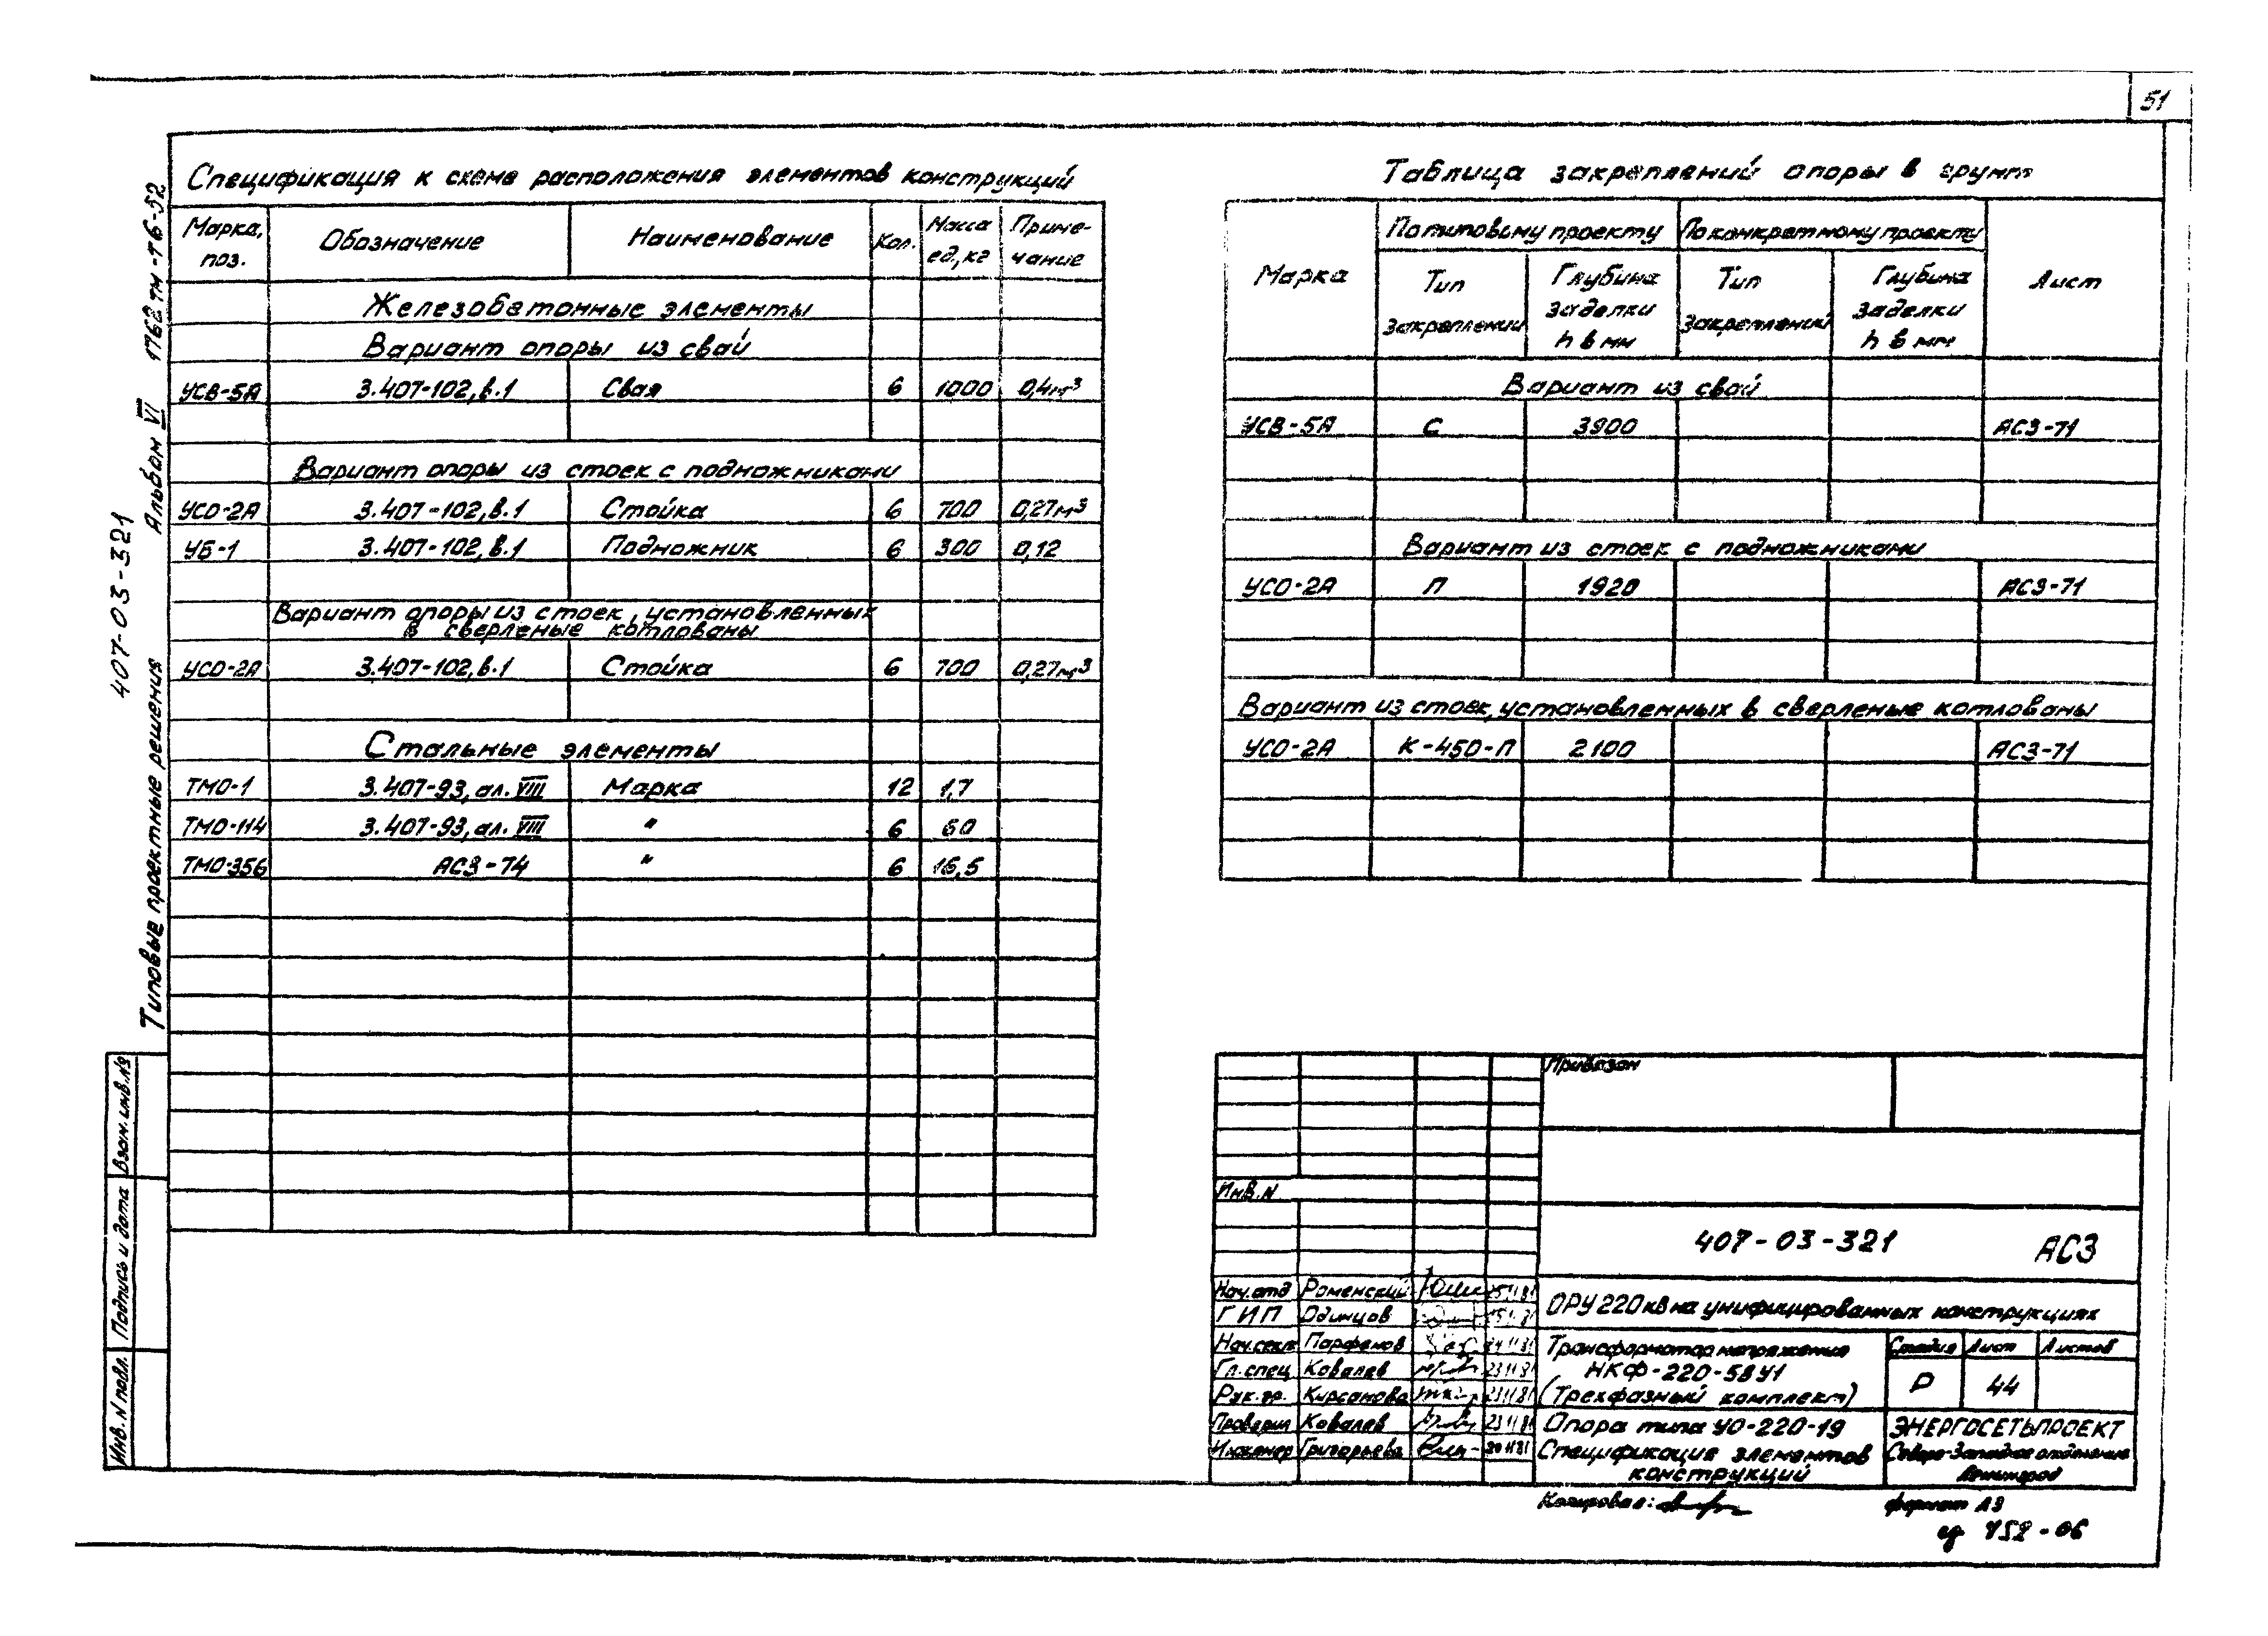 51
Спецификация к схеме расположения элементов конструкций
Марка, поз. Обозначение Наименование Кол. Масса ед, кг Приме-чание
Железобетонные элементы
Вариант опоры из свай
УСВ-5А 3.407-102, в.1 Свая 6 1000 0,4м³
Вариант опоры из стоек с подножниками
УСО-2А 3.407-102, в.1 Стойка 6 700 0,27м³
УБ-1 3.407-102, в.1 Подножник 6 300 0,12
Вариант опоры из стоек, установленных
в сверленые котлованы
УСО-2А 3.407-102, в.1 Стойка 6 700 0,27м³
Стальные элементы
ТМО-1 3.407-93, ал. VIII Марка 12 1,7
ТМО-114 3.407-93, ал. VIII " 6 60
ТМО-356 АС3-74 " 6 16,5
Таблица закреплений опоры в грунт
Марка По типовому проекту По конкретному проекту Лист
Тип закреплений Глубина заделки h в мм Тип закреплений Глубина заделки h в мм
Вариант из свай
УСВ-5А С 3900 АС3-71
Вариант из стоек с подножниками
УСО-2А П 1920 АС3-71
Вариант из стоек, установленных в сверленые котлованы
УСО-2А К-450-П 2100 АС3-71
407-03-321
Типовые проектные решения Альбом VI 1762тм-т6-52
Взам. инв. №
Подпись и дата
Инв. N подл.
Привязан
Инв. N
407-03-321 АС3
Нач. отд Роменский
ГИП Одинцов
Нач. сект Парфенов
Гл. спец Ковалев 23 11 81
Рук. гр. Кирсанова 23 11 81
Проверил Ковалев 23 11 81
Инженер Григорьева 20 11 81
ОРУ 220 кВ на унифицированных конструкциях
Трансформатор напряжения
НКФ-220-58 У1
(Трехфазный комплект)
Стадия Лист Листов
Р 44
Опора типа УО-220-19
Спецификация элементов
конструкций
ЭНЕРГОСЕТЬПРОЕКТ
Северо-Западное отделение
Ленинград
Копировал:
формат А3